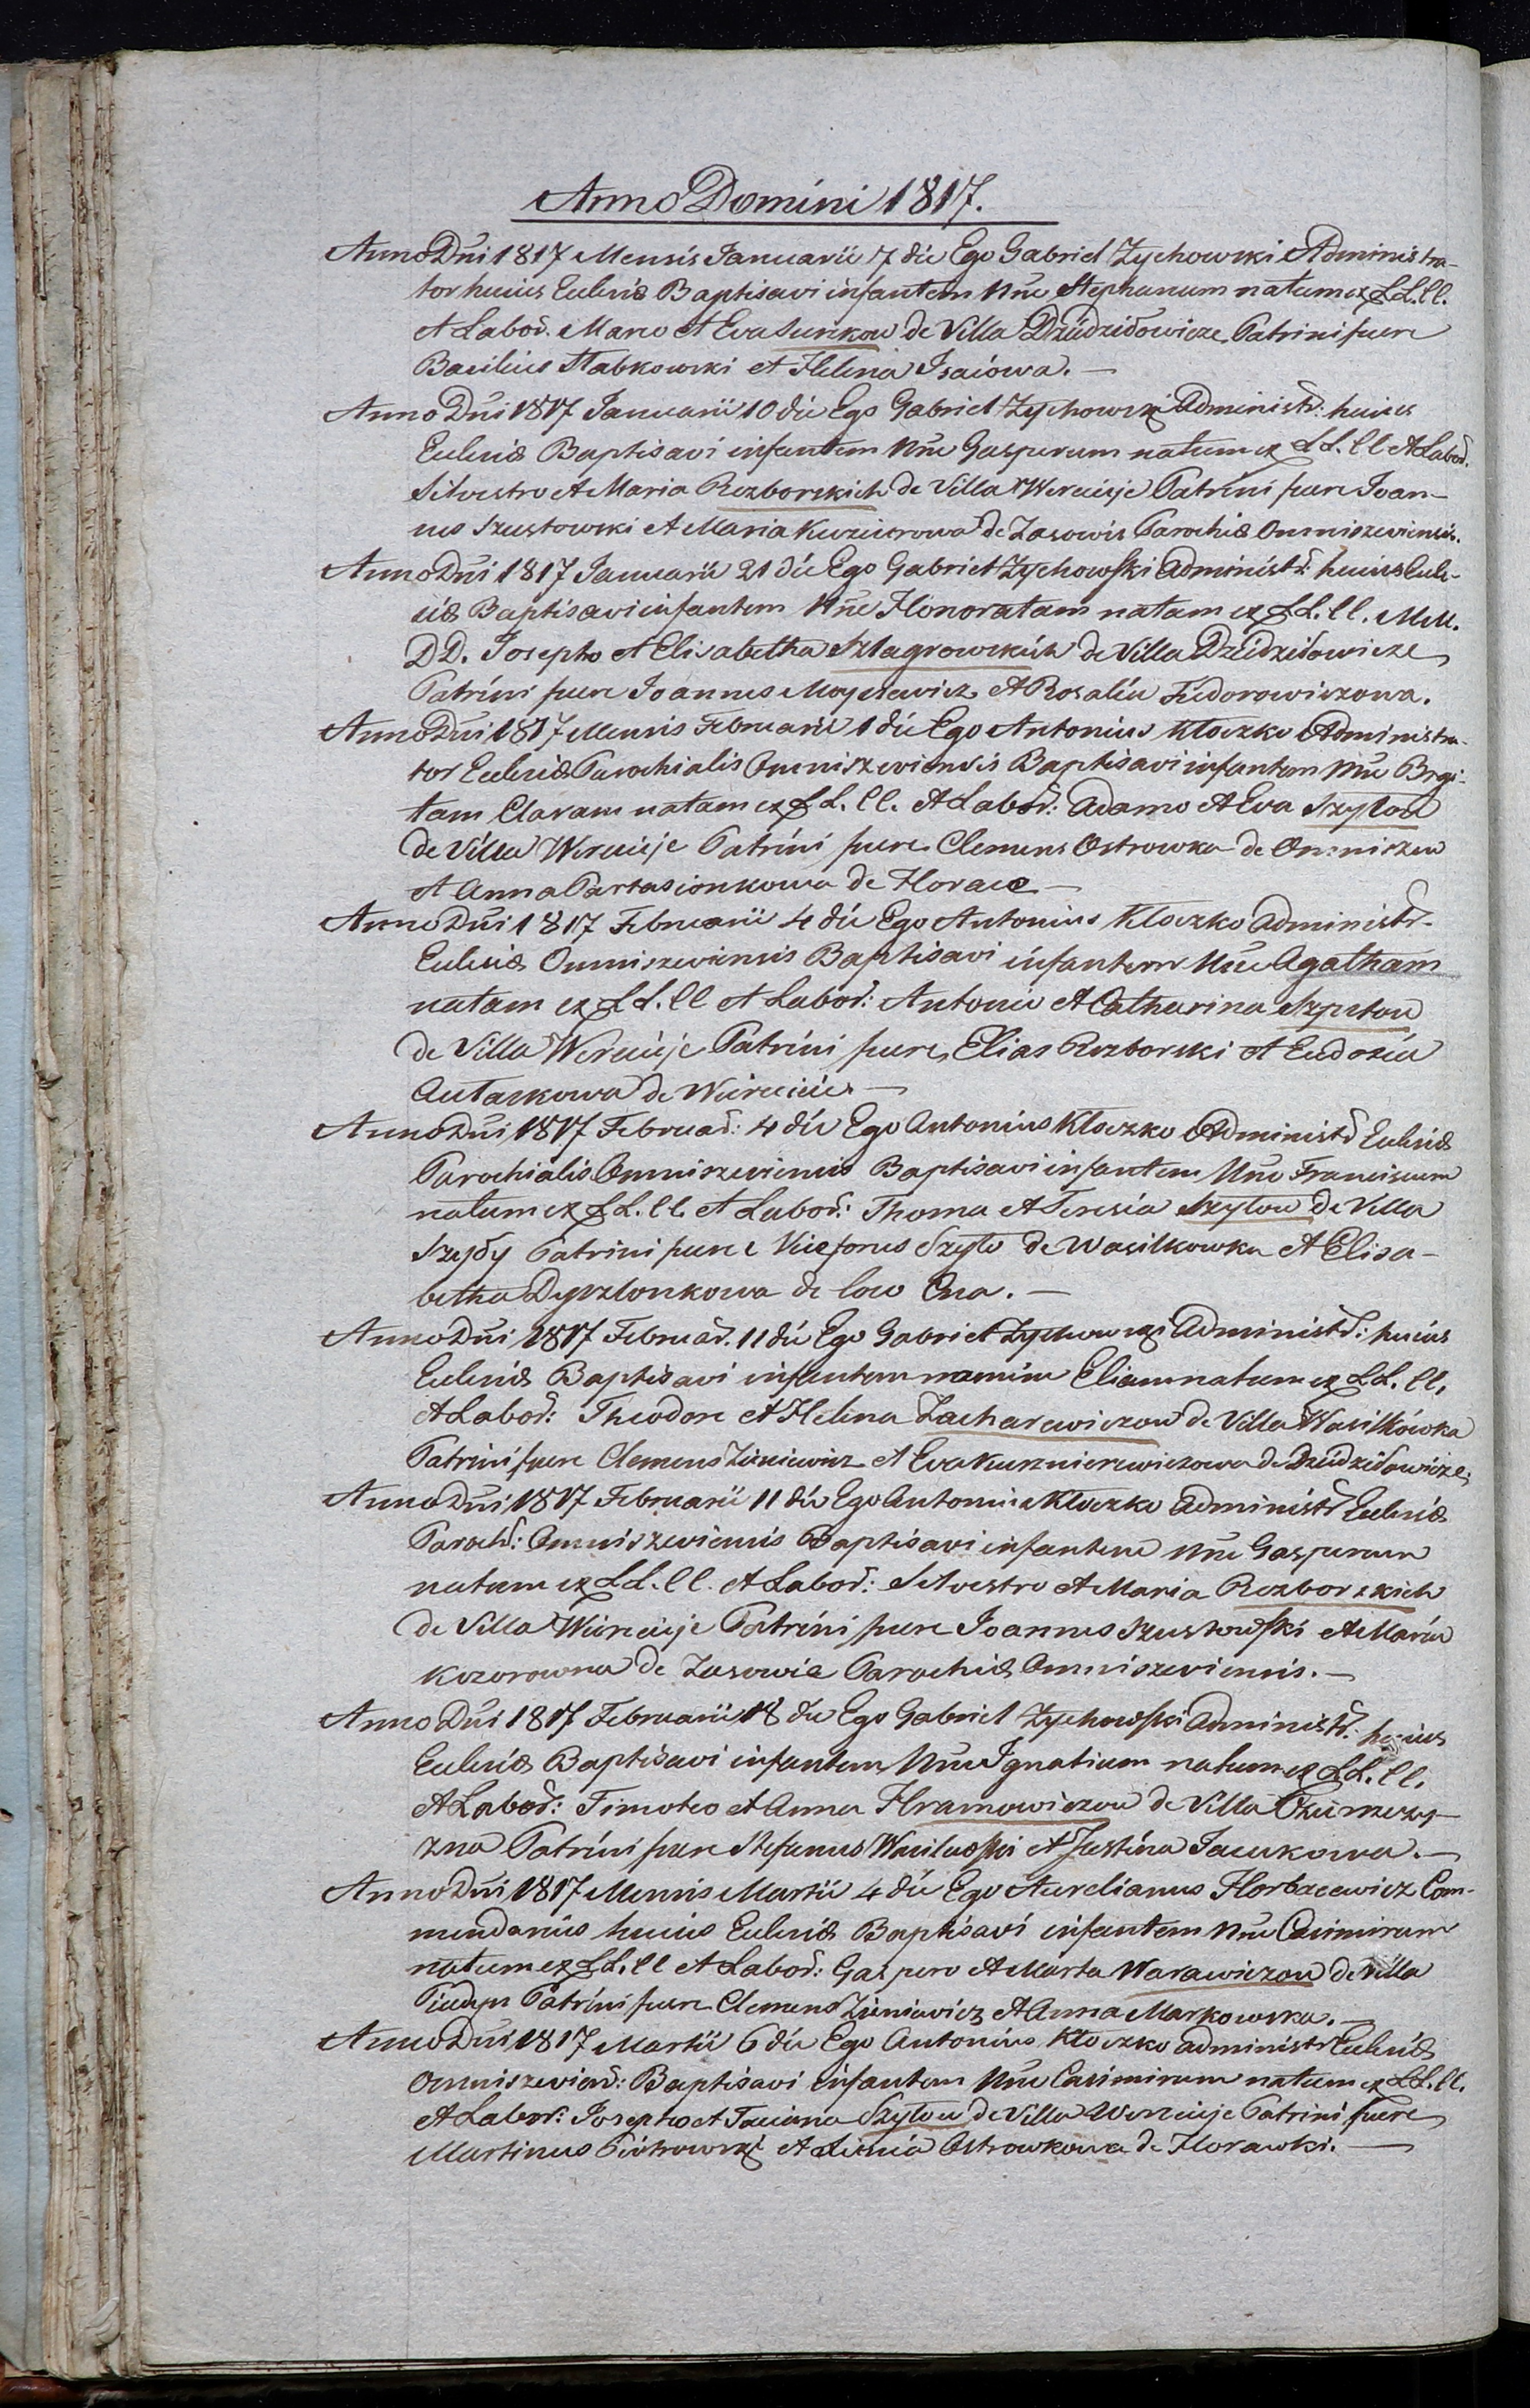 Anno Domini 1817.
Anno Dni 1817 Mensis Januarii 7 die Ego Gabriel Zychowski Administra-
tor huius Eclesiæ Baptisavi infantem Nne Stephanum natum ex LL. CC.
et Labor. Marco et Eva de Villa Dziedzidowicze Patrini fuere
Basilius Stabkowski et Helena Isaiowa. —
Anno Dni 1817 Januarii 10 die Ego Gabriel Zychowski Administr: huius
Eclesiæ Baptisavi infantem Nne Gasparum natum ex LL. CC et Labor.
Silvestro et Maria Rozborskich de Villa Wereieje Patrini fuere Joan-
nes Szustowski et Maria de Zasowie Parochiæ Omniszeviensis.
Anno Dni 1817 Januarii 21 die Ego Gabriel Zychowski Administr: huius Ecle-
siæ Baptisavi infantem Nne Honoratam natam ex LL. CC. MM.
DD. Josepho et Elisabetha Szlagrowskich de Villa Dziedzidowicze
Patrini fuere Joannes Moysiewicz et Rosalia Fiedorowiczowa.
Anno Dni 1817 Mensis Februarii 1 die Ego Antonius Kloczko Administra-
tor Eclesiæ Parochialis Omniszeviensis Baptisavi infantem Nne Brygi-
tam Claram natam ex LL. CC. et Labor: Adamo et Eva Szytow
de Villa Wereieje Patrini fuere Clemens Ostrowka de Omniszew
et Anna Partasionkowa de Horawe —
Anno Dni 1817 Februarii 4 die Ego Antonius Kloczko Administr.
Eclesiæ Omniszeviensis Baptisavi infantem Nne Agatham
natam ex LL. CC et Labor: Antonio et Catharina
de Villa Wereieje Patrini fuere Elias Rozborski et Eudoxia
Autaskowa de —
Anno Dni 1817 Februar: 4 die Ego Antonius Kloczko Administr Eclesiæ
Parochialis Omniszeviensis Baptisavi infantem Nne Franciscum
natum ex LL. CC. et Labor: Thoma et Teresia Szytow de Villa
Szyły Patrini fuere Niceforus Szyto de Wasilkowka et Elisa-
betha Dyszlonkowa de . —
Anno Dni 1817 Februar. 11 die Ego Gabriel Zychowski Administr: huius
Eclesiæ Baptisavi infantem nomine Eliam natum ex LL. CC.
et Labor: Theodore et Helena Zacharewiczow de Villa Wasilkówka
Patrini fuere Clemens Zieniewicz et Eva Kusznierewiczowa de Dziedzidowicze.
Anno Dni 1817 Februarii 11 die Ego Antonius Kloczko Administr Eclesiæ
Paroch: Omniszeviensis Baptisavi infantem Nne Gasparum
natum ex LL. CC. et Labor: Silvestro et Maria Rozborskich
de Villa Wiereieje Patrini fuere Joannes Szustowski et Maria
Kozorowna de Zasowie Parochiæ Omniszeviensis. —
Anno Dni 1817 Februarii 18 die Ego Gabriel Zychowski Administr: huius
Eclesiæ Baptisavi infantem Nne Ignatium natum ex LL. CC.
et Labor: Timoteo et Anna Hramowiczow de Villa
zna Patrini fuere Stefanus et Justina Jacukowa. —
Anno Dni 1817 Mensis Martii 4 die Ego Aurelianus Horbacewicz Com-
mendarius huius Eclesiæ Baptisavi infantem Nne Casimirum
natum ex LL. CC et Labor: Gaspero et Marta Warawiczow de Villa
Patrini fuere Clemens Zieniewicz et Anna Markowska. —
Anno Dni 1817 Martii 6 die Ego Antonius Kloczko Administr Eclesiæ
Omniszevien: Baptisavi infantem Nne Casimirum natum ex LL. CC.
et Labor: Josepho et Taciana Szytow de Villa Wereieje Patrini fuere
Martinus Piotrowski et Ostrowkowa de Horawki. —